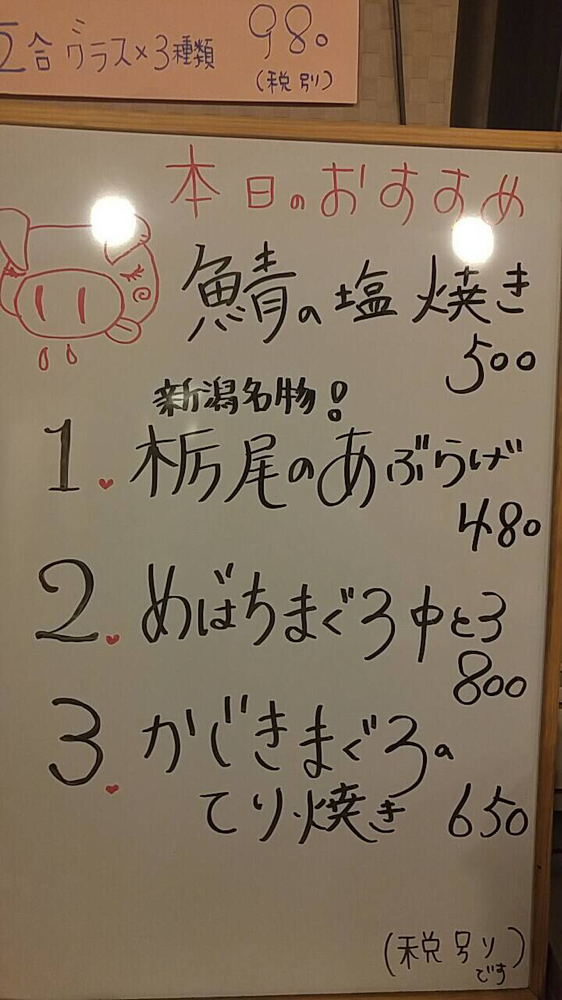 2合グラス×3種類 980
(税別)
本日のおすすめ
鯖の塩焼き
500
新潟名物!
1. 栃尾のあぶらげ
480
2. めばちまぐろ中とろ
800
3. かじきまぐろの
てり焼き 650
(税別)
です